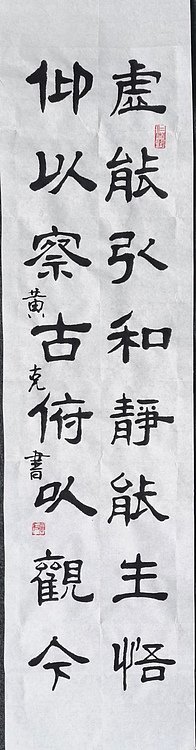 虛能引和靜能生悟
仰以察古俯以觀今
黄克書